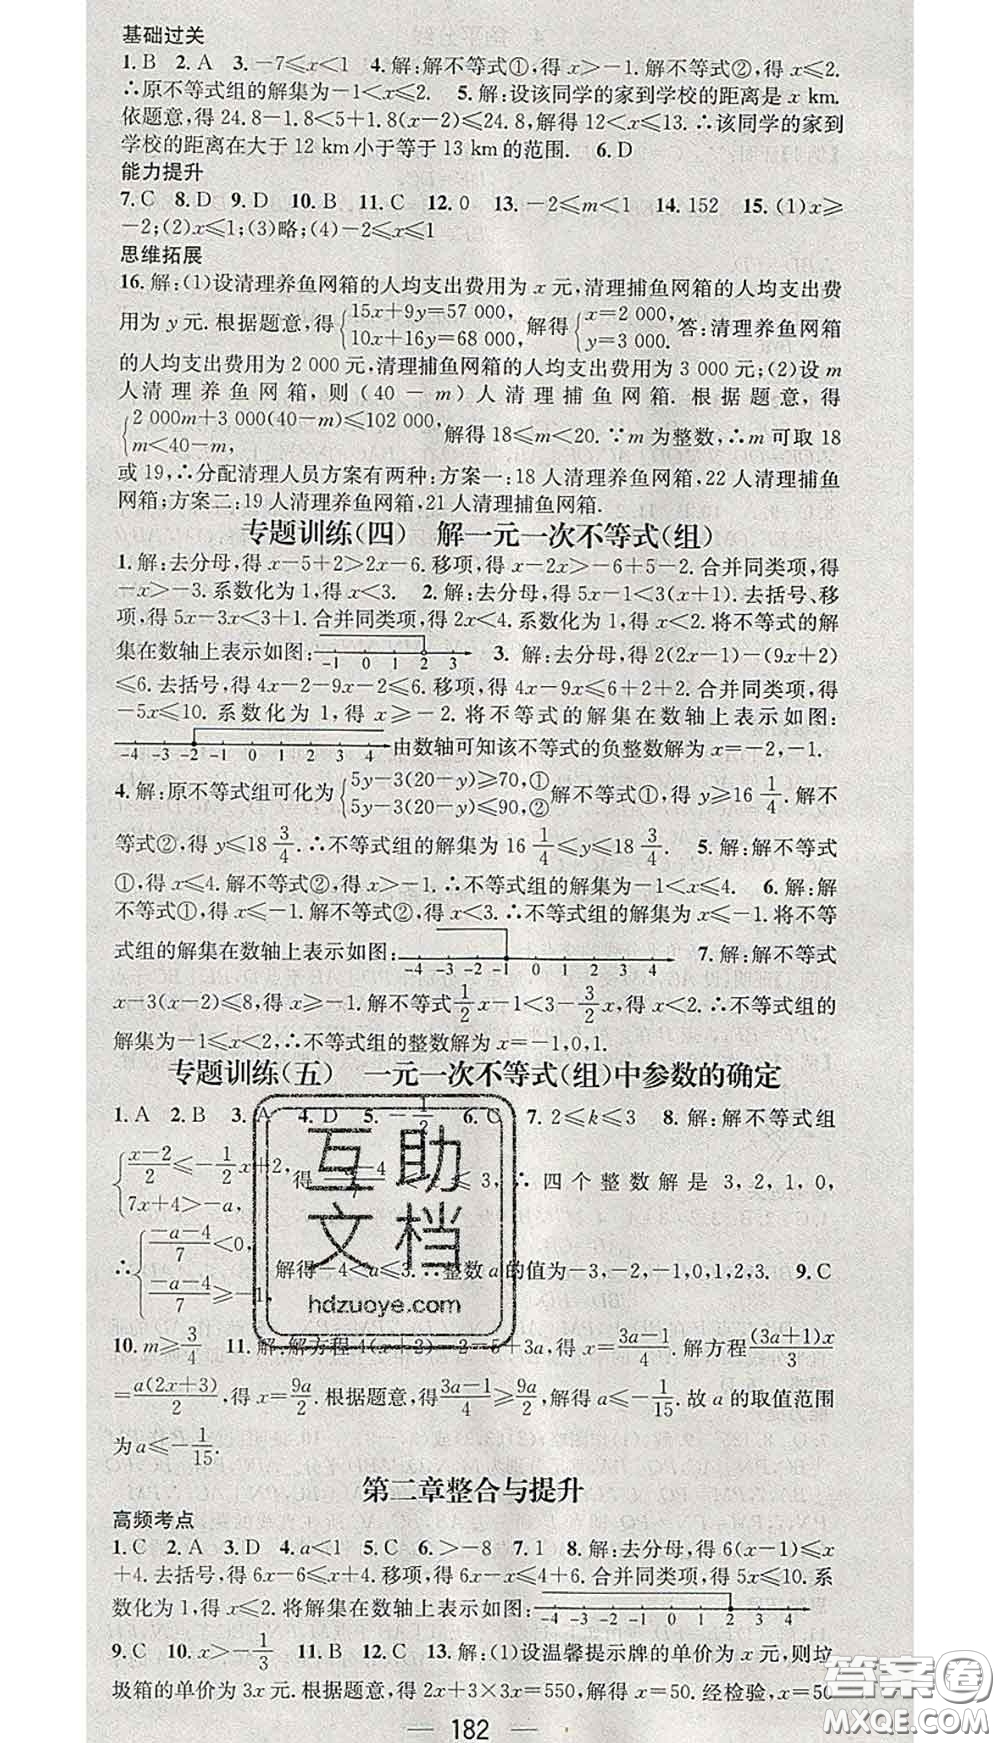 基础过关
1. B 2. A 3. －7≤x＜1 4. 解:解不等式①,得 x＞－1. 解不等式②,得 x≤2.
∴原不等式组的解集为－1＜x≤2. 5. 解:设该同学的家到学校的距离是 x km.
依题意,得 24.8－1.8＜5＋1.8(x－2)≤24.8,解得 12＜x≤13. ∴该同学的家到
学校的距离在大于 12 km 小于等于 13 km 的范围. 6. D
能力提升
7. C 8. D 9. D 10. B 11. C 12. 0 13. －2≤m＜1 14. 152 15. (1)x≥
－2;(2)x≤1;(3)略;(4)－2≤x≤1
思维拓展
16. 解:(1)设清理养鱼网箱的人均支出费用为 x 元,清理捕鱼网箱的人均支出费
用为 y 元. 根据题意,得{15x＋9y＝57 000, 10x＋16y＝68 000,解得{x＝2 000, y＝3 000.答:清理养鱼网箱
的人均支出费用为 2 000 元,清理捕鱼网箱的人均支出费用为 3 000 元;(2)设 m
人清理养鱼网箱,则(40－m)人清理捕鱼网箱. 根据题意,得
{2 000m＋3 000(40－m)≤102 000, m＜40－m,解得 18≤m＜20. ∵m 为整数,∴m 可取 18
或 19,∴分配清理人员方案有两种:方案一:18 人清理养鱼网箱,22 人清理捕鱼
网箱;方案二:19 人清理养鱼网箱,21 人清理捕鱼网箱.
专题训练(四) 解一元一次不等式(组)
1. 解:去分母,得 x－5＋2＞2x－6. 移项,得 x－2x＞－6＋5－2. 合并同类项,得
－x＞－3. 系数化为 1,得 x＜3. 2. 解:去分母,得 5x－1＜3(x＋1). 去括号、移
项,得 5x－3x＜3＋1. 合并同类项,得 2x＜4. 系数化为 1,得 x＜2. 将不等式的解
集在数轴上表示如图: －1 0 1 2 3 3. 解:去分母,得 2(2x－1)－(9x＋2)
≤6. 去括号,得 4x－2－9x－2≤6. 移项,得 4x－9x≤6＋2＋2. 合并同类项,得
－5x≤10. 系数化为 1,得 x≥－2. 将不等式的解集在数轴上表示如图:
－4 －3 －2 －1 0 1 2 3 4 由数轴可知该不等式的负整数解为 x＝－2,－1.
4. 解:原不等式组可化为{5y－3(20－y)≥70,① 5y－3(20－y)≤90,②解不等式①,得 y≥16 1/4. 解不
等式②,得 y≤18 3/4. ∴不等式组的解集为 16 1/4≤y≤18 3/4. 5. 解:解不等式
①,得 x≤4. 解不等式②,得 x＞－1. ∴不等式组的解集为－1＜x≤4. 6. 解:解
不等式①,得 x≤－1. 解不等式②,得 x＜3. ∴不等式组的解集为 x≤－1. 将不等
式组的解集在数轴上表示如图: －4 －3 －2 －1 0 1 2 3 4 7. 解:解不等式
x－3(x－2)≤8,得 x≥－1. 解不等式1/2x－1＜3－3/2x,得 x＜2. ∴不等式组的
解集为－1≤x＜2,∴不等式组的整数解为 x＝－1,0,1.
专题训练(五) 一元一次不等式(组)中参数的确定
1. A 2. B 3. A 4. D 5. －1/2 6. C 7. 2≤k≤3 8. 解:解不等式组
{(x－2)/2≤－1/2x＋2, 7x＋4＞－a, 得 ≤3,∴四个整数解是 3,2,1,0,
∴{(－a－4)/7＜0, (－a－4)/7≥－1, 解得－4＜a≤3. ∴整数 a 的值为－3,－2,－1,0,1,2,3. 9. C
10. m≥3/4 11. 解:解方程 4(x＋2)－2＝5＋3a,得 x＝(3a－1)/4. 解方程((3a＋1)x)/3
＝(a(2x＋3))/2,得 x＝9a/2. 根据题意,得(3a－1)/4≥9a/2,解得 a≤－1/15. 故 a 的取值范围
为 a≤－1/15.
第二章整合与提升
高频考点
1. C 2. A 3. D 4. a＜1 5. C 6. ＞－8 7. 1 8. 解:去分母,得 6(x－1)≤x
＋4. 去括号,得 6x－6≤x＋4. 移项,得 6x－x≤4＋6. 合并同类项,得 5x≤10. 系
数化为 1,得 x≤2. 将解集在数轴上表示如图: －4 －3 －2 －1 0 1 2 3 4
9. C 10. x＞－1/3 11. B 12. C 13. 解:(1)设温馨提示牌的单价为 x 元,则垃
圾箱的单价为 3x 元. 根据题意,得 2x＋3×3x＝550,解得 x＝50. 经检验,x＝50
182
互助文档
hdzuoye.com
答案圈
MXQE.COM